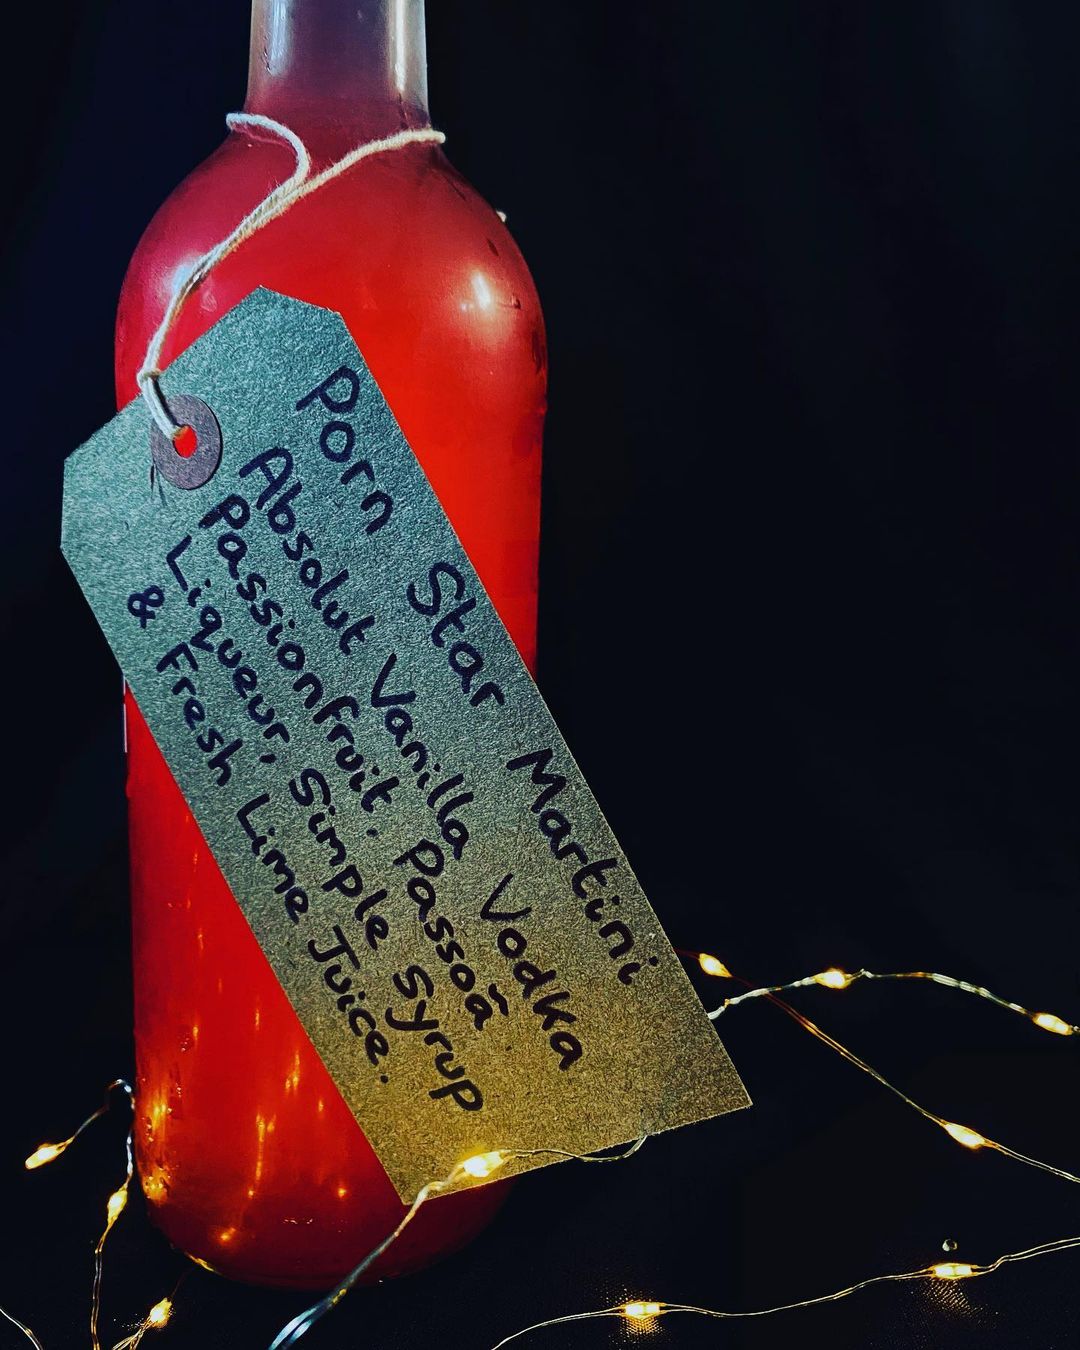 Porn Star Martini
Absolut Vanilla Vodka
Passionfruit. Passoã
Liqueur, Simple Syrup
& Fresh Lime Juice.